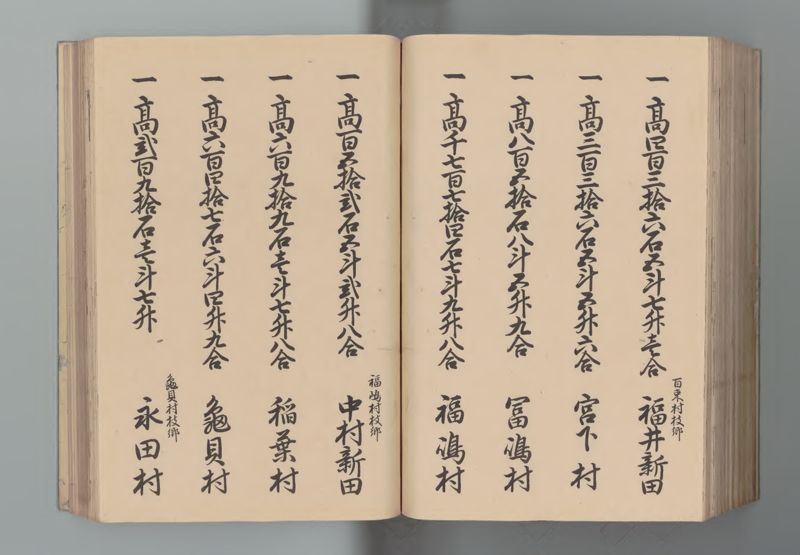 一高四百三拾六石五斗七升壱合
百束村枝郷
福井新田
一高三百三拾六石五斗五升六合
宮下村
一高八百五拾石八斗五升九合
冨嶋村
一高千七百七拾四石七斗九升八合
福嶋村
一高百五拾弐石五斗弐升八合
福嶋村枝郷
中村新田
一高六百九拾九石壱斗七升八合
稲葉村
一高六百四拾七石六斗四升九合
龜貝村
一高弐百九拾石壱斗七升
龜貝村枝郷
永田村